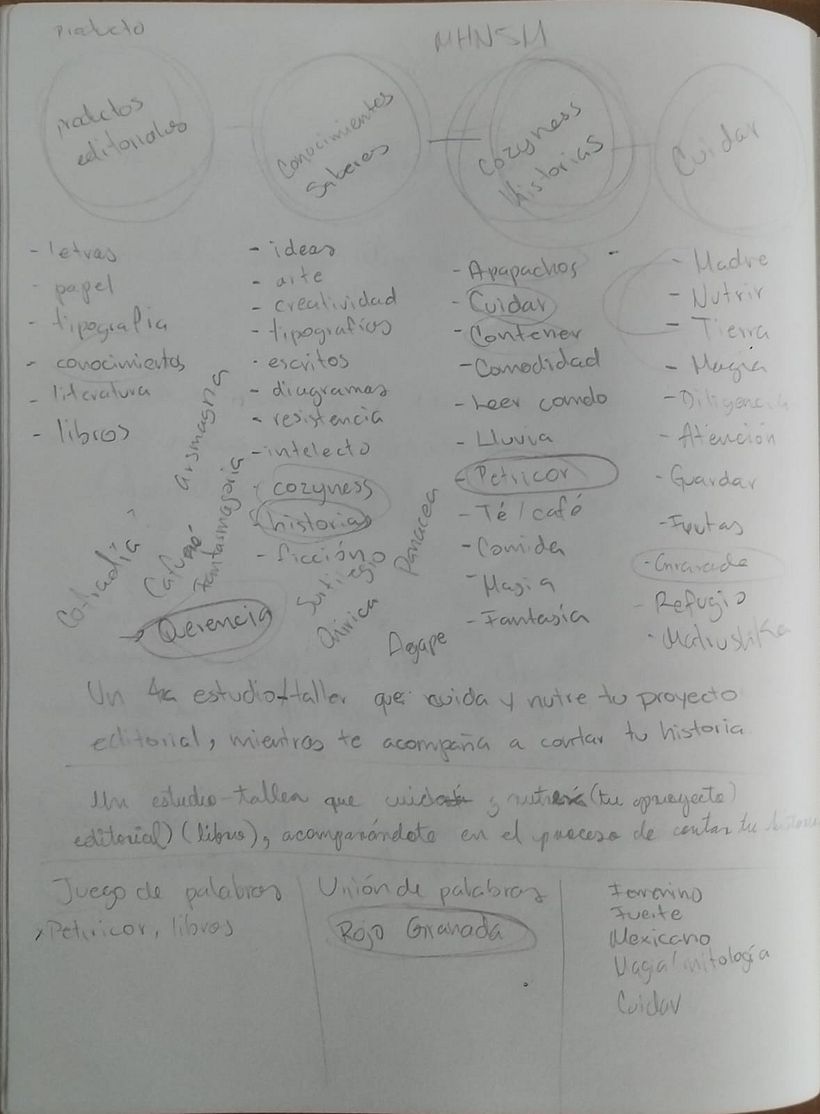 Producto
MHNSM
Productos
editoriales
Conocimientos
Saberes
Cozyness
Historias
Cuidar
- letras
- papel
- tipografia
- conocimientos
- literatura
- libros
- ideas
- arte
- creatividad
- tipografias
- escritos
- diagramas
- resistencia
- intelecto
- cozyness
- historias
- ficción
- Apapachos
- Cuidar
- Contener
- Comodidad
- Leer comodo
- Lluvia
- Petricor
- Té / café
- Comida
- Magia
- Fantasía
- Madre
- Nutrir
- Tierra
- Magia
- Diligencia
- Atención
- Guardar
- Frutas
- Refugio
- Matrushka
Cofradia
arsmagna
Fantasmagoria
Querencia
Sortilegio
Onirica
Panacea
Agape
Un estudio-taller que cuida y nutre tu proyecto
editorial, mientras te acompaña a contar tu historia
Un estudio-taller que cuida y nutre (tu proyecto)
editorial) (libro), acompañándote en el proceso de contar tu historia
Juego de palabras
Petricor, libros
Unión de palabras
Rojo Granada
Femenino
Fuerte
Mexicano
Magia/mitología
Cuidar